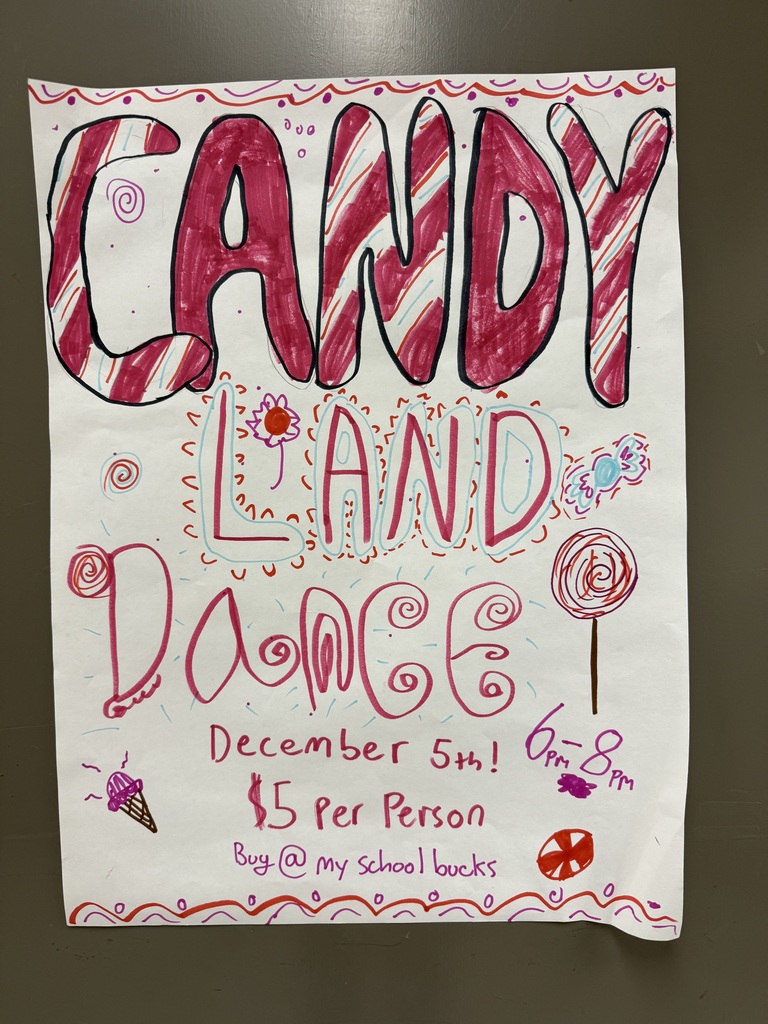 CANDY
LAND
DANCE
December 5th!
6PM-8PM
$5 Per Person
Buy @ my school bucks